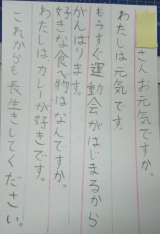 さんお元気ですか。
わたしは元気です。
もうすぐ運動会がはじまるから
がんばります。
好きな食べ物はなんですか。
わたしはカレーが好きです。
これからも長生きしてください。